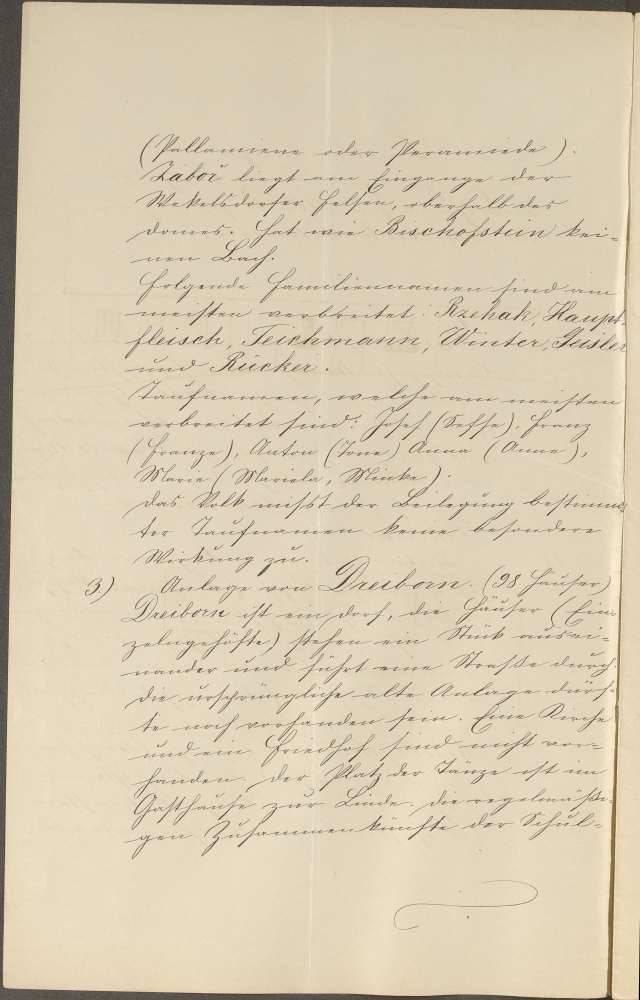 (Pallamiene oder Peramiede).
Zabor liegt am Eingange der
Wekelsdorfer Felsen, oberhalb des
Domes. Hat wie Bischofstein kei=
nen Bach.
Folgende Familiennamen sind am
meisten verbreitet: Rzehak, Haupt-
fleisch, Teichmann, Winter, Seisler
und Rücker.
Taufnamen, welche am meisten
verbreitet sind: Josef (Seffe), Franz
(Franze), Anton (Tone) Anna (Anne),
Marie (Mariela, Minke).
Das Volk misst der Beilegung bestimm=
ter Taufnamen keine besondere
Wirkung zu.
3) Anlage von Dreiborn. (98 Häuser)
Dreiborn ist ein Dorf, die Häuser (Ein=
zelngehöfte) stehen ein Stük ausei=
nander und führt eine Straße durch.
Die ursprüngliche alte Anlage dürf=
te noch vorhanden sein. Eine Kirche
und ein Friedhof sind nicht vor=
handen. Der Platz der Tänze ist im
Gasthause zur Linde. Die regelmäßi=
gen Zusammenkünfte der Schul=